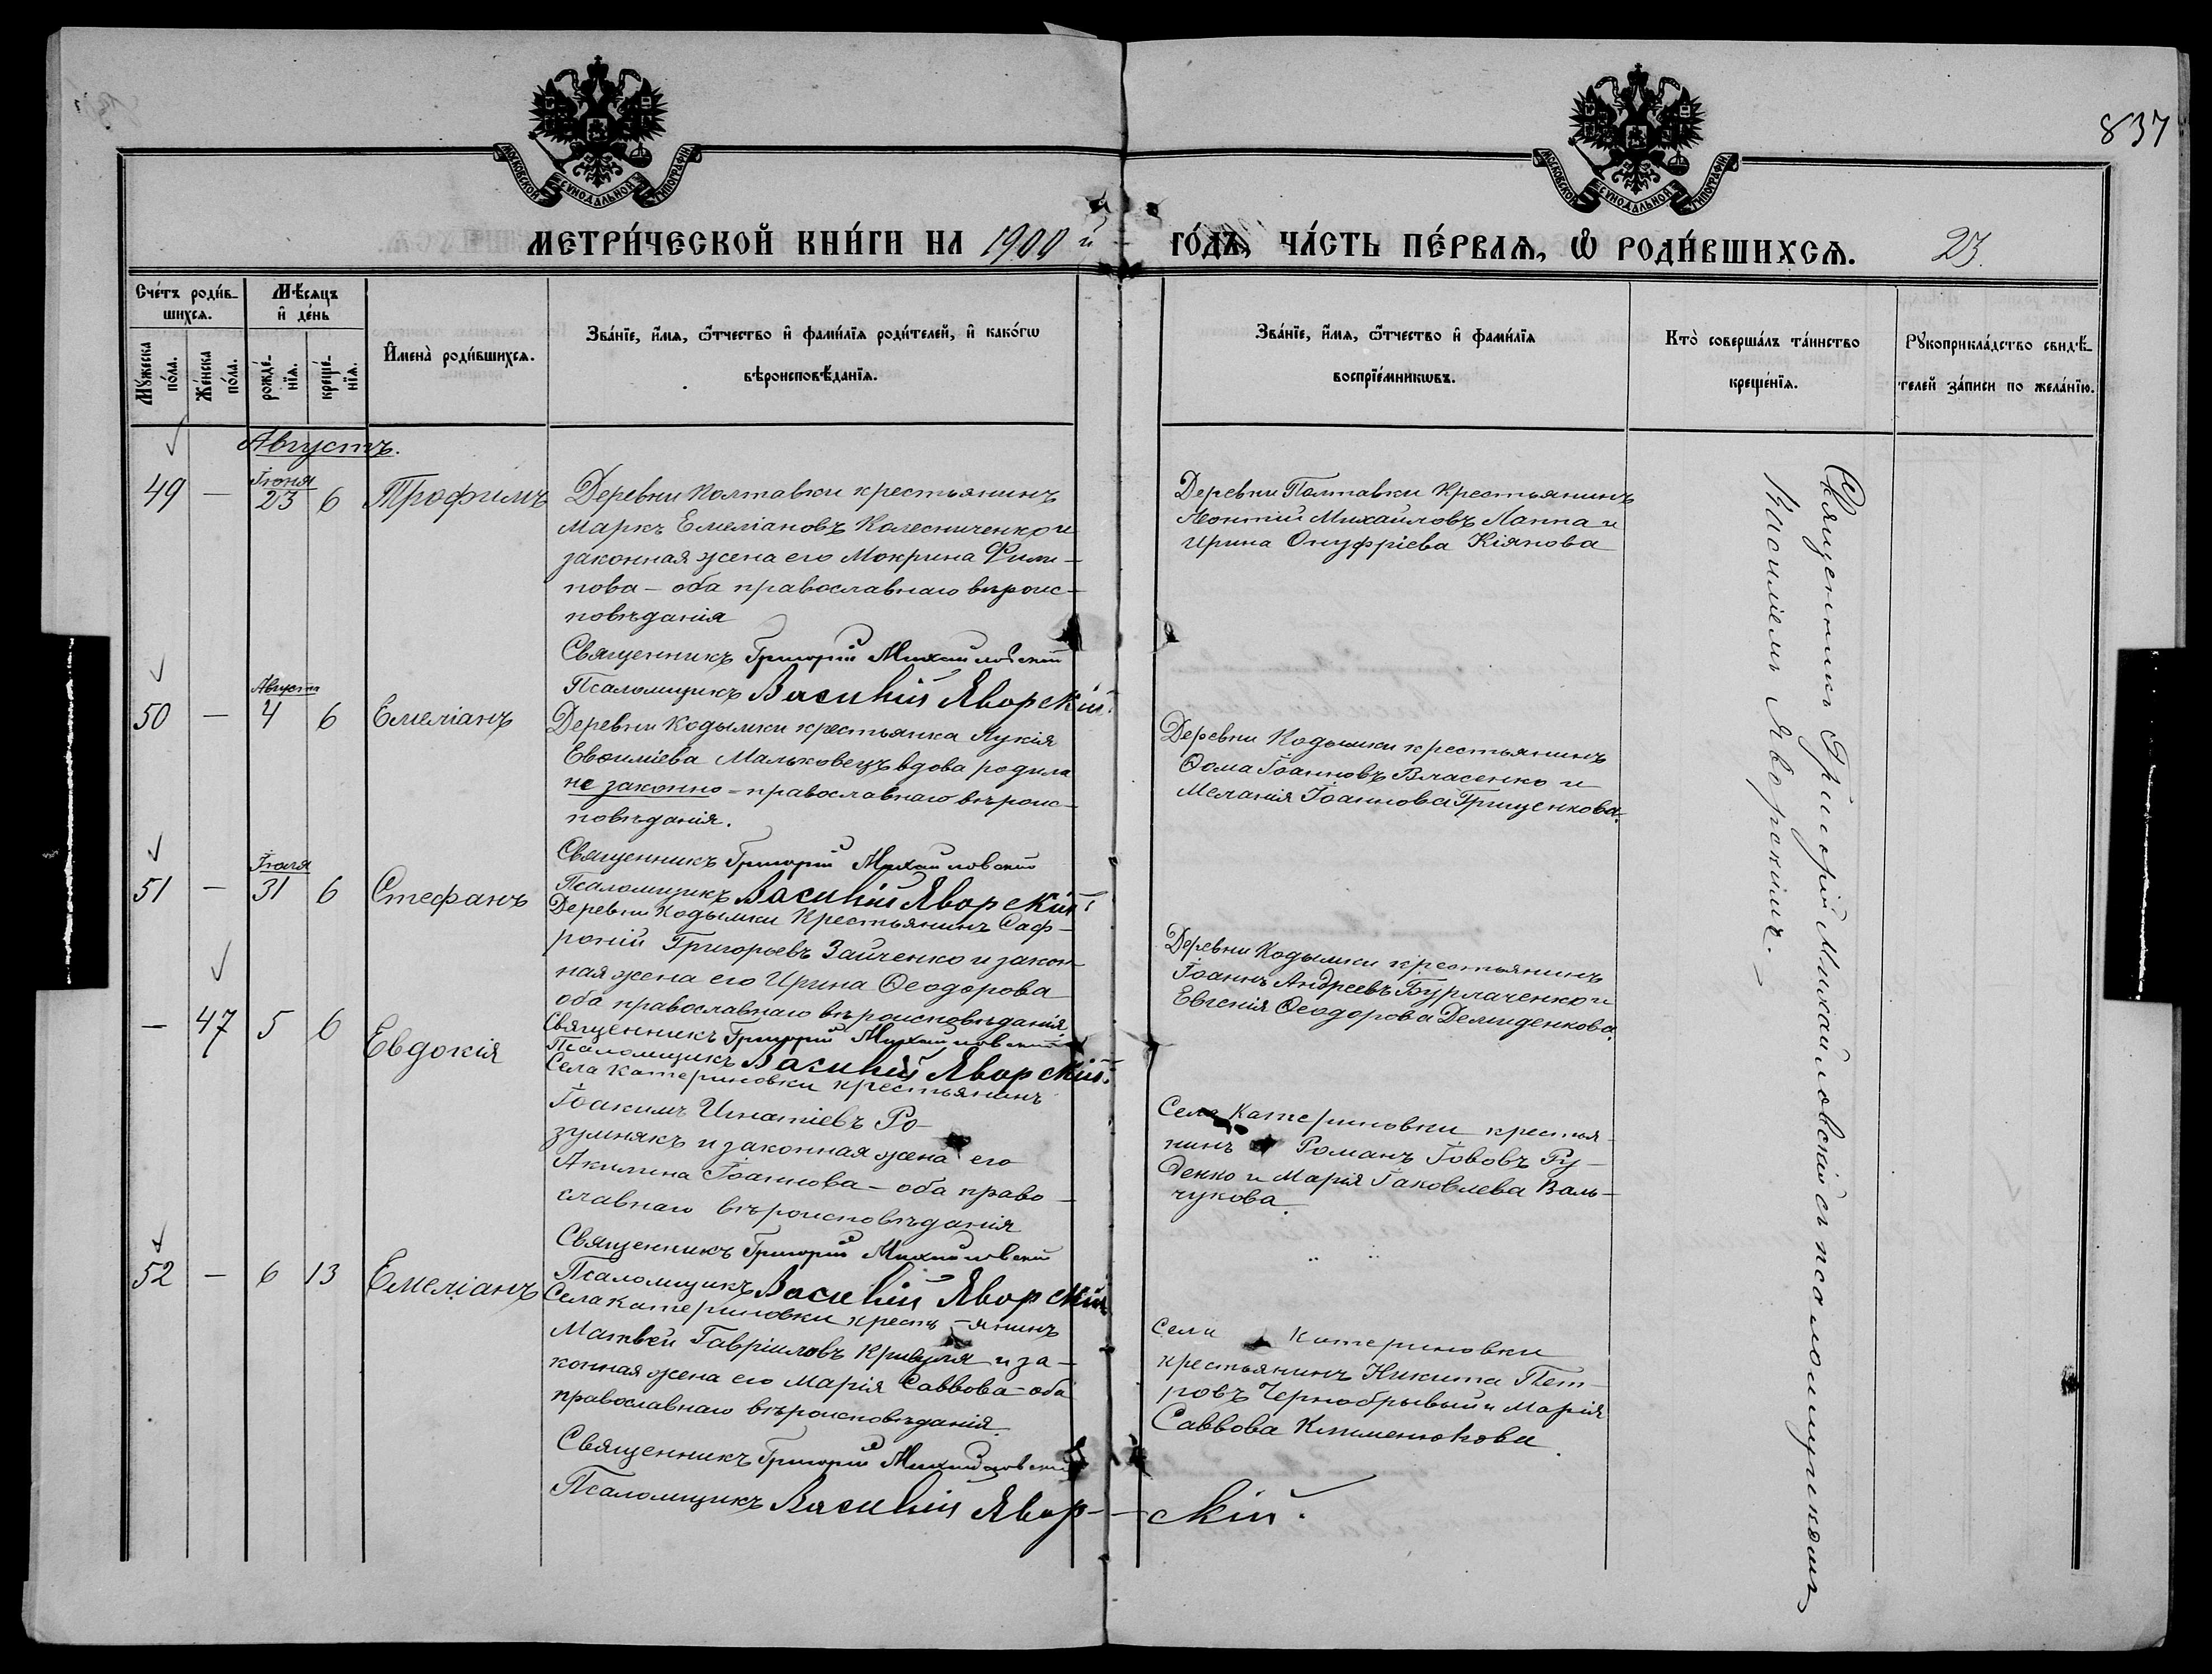 837
МОСКОВСКОЙ СѴНОДАЛЬНОЙ ТИПОГРАФІИ
МОСКОВСКОЙ СѴНОДАЛЬНОЙ ТИПОГРАФІИ
МЕТРИ́ЧЕСКОЙ КНИ́ГИ НА 1900й ГО́ДЪ, ЧА́СТЬ ПЕ́РВАѦ, Ѽ РОДИ́ВШИХСѦ. 23.
Сче́тъ роди́в-
шихсѧ.
Мѣ́сѧцъ
и҆ де́нь
Мꙋ́жеска
по́ла.
Же́нска
по́ла.
рожде́-
нїѧ.
креще́-
нїѧ.
И҆мена̀ роди́вшихсѧ.
Зва́нїе, и҆́мѧ, ѻ҆́тчество и҆ фами́лїѧ роди́телей, и҆ како́гѡ
вѣроисповѣ́данїѧ.
Зва́нїе, и҆́мѧ, ѻ҆́тчество и҆ фами́лїѧ
воспрїе́мникѡвъ.
Кто̀ соверша́лъ та́инство
креще́нїѧ.
Рꙋкоприкла́дство свидѣ́-
телей за́писи по жела́нїю.
Августъ.
49 — Іюня 23 6 Трофимъ
Деревни Полтавки крестьянинъ
Маркъ Емеліановъ Колесниченко и
законная жена его Мокрина Фили-
пова – оба православнаго вѣроис-
повѣданія
Священникъ Григорій Михайловскій
Псаломщикъ Василій Яворскій.
Деревни Полтавки Крестьянинъ
Леонтій Михайловъ Лаппа и
Ирина Онуфріева Кіянова
50 — Августа 4 6 Емеліанъ
Деревни Кодымки крестьянка Лукія
Евѳиміева Мальковецъ вдова родила
не законно – православнаго вѣроис-
повѣданія.
Священникъ Григорій Михайловскій
Псаломщикъ Василій Яворскій.
Деревни Кодымки крестьянинъ
Ѳома Іоанновъ Власенко и
Меланія Іоаннова Грищенкова.
51 — Іюля 31 6 Стефанъ
Деревни Кодымки Крестьянинъ Саф-
роній Григорьевъ Зайченко и закон-
ная жена его Ирина Ѳеодорова
оба православнаго вѣроисповѣданія.
Священникъ Григорій Михайловскій
Псаломщикъ Василій Яворскій.
Деревни Кодымки крестьянинъ
Іоаннъ Андреевъ Бурлаченко и
Евгенія Ѳеодорова Демиденкова.
— 47 5 6 Евдокія
Села Катериновки крестьянинъ
Іоакимъ Игнатіевъ Ро-
зумнякъ и законная жена его
Акилина Іоаннова – оба право-
славнаго вѣроисповѣданія
Священникъ Григорій Михайловскій
Псаломщикъ Василій Яворскій
Села Катериновки крестья-
нинъ Романъ Іововъ Ру-
денко и Марія Іаковлева Валь-
чукова.
52 — 6 13 Емеліанъ
Села Катериновки кресть-янинъ
Матвей Гавріиловъ Кривуля и за-
конная жена его Марія Саввова – оба
православнаго вѣроисповѣданія.
Священникъ Григорій Михайловскій
Псаломщикъ Василій Явор--скій.
Села Катериновки
крестьянинъ Никита Пет-
ровъ Чернобрывый и Марія
Саввова Клименюкова.
Священникъ Григорій Михайловскій съ псаломщикомъ
Василіемъ Яворскімъ.